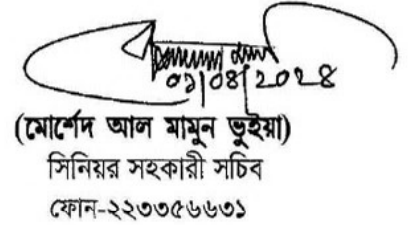 ০১|০৪|২০২৪
(মোর্শেদ আল মামুন ভুইয়া)
সিনিয়র সহকারী সচিব
ফোন-২২৩৩৫৬৬৩১